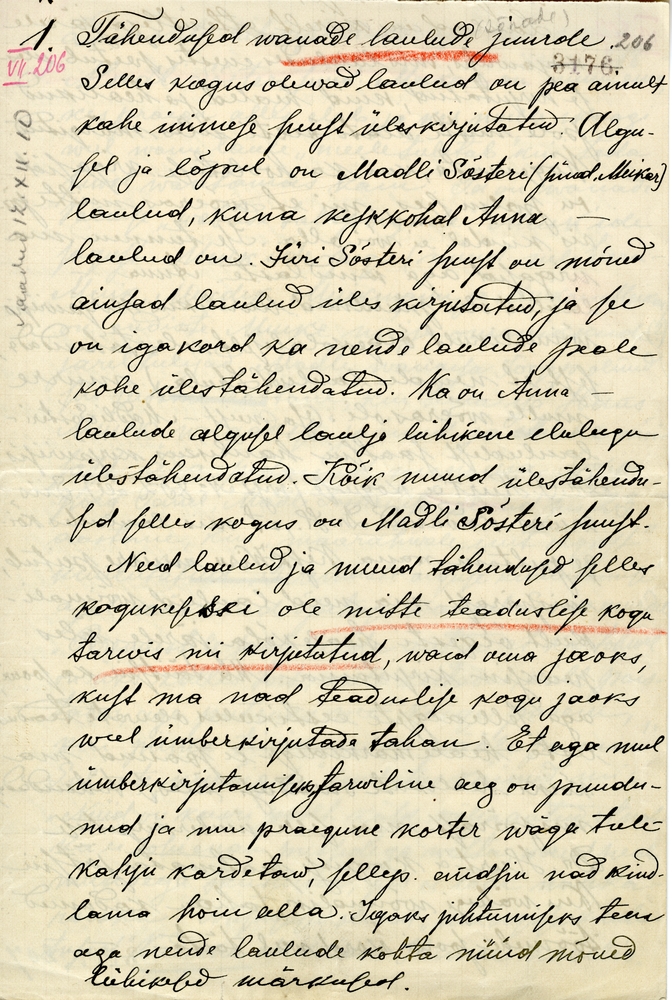 1. Tähendused wanade laulude juurde. 206
VII. 206
3176.
Selles kogus olewad laulud on pea ainult
kahe inimese suust üleskirjutatud. Algu-
sel ja lõpul on Madli Sõsteri (sünd. Meikar)
laulud, kuna keskkohal Anna —
laulud on. Jüri Sõsteri suust on mõned
ainsad laulud üles kirjutatud, ja see
on igakord ka nende laulude peale
kohe ülestähendatud. Ka on Anna —
laulude algusel laulja lühikene elulugu
ülestähendatud. Kõik muud ülestähendu-
sed selles kogus on Madli Sõsteri suust.
Need laulud ja muud tähendused selles
kogukeseski ole mitte teaduslise kogu
tarwis nii kirjutatud, waid oma jaoks,
kust ma nad teaduslise kogu jaoks
weel ümberkirjutada tahan. Et aga mul
ümberkirjutamiseks tarwiline aeg on puudu-
nud ja mu praegune korter wäga tule-
kahju kardetaw, sellep. andsin nad kind-
lama hoiu alla. Igaks juhtumiseks teen
aga nende laulude kohta nüüd mõned
lühikesed märkused.
Saadud 12. XII. 10